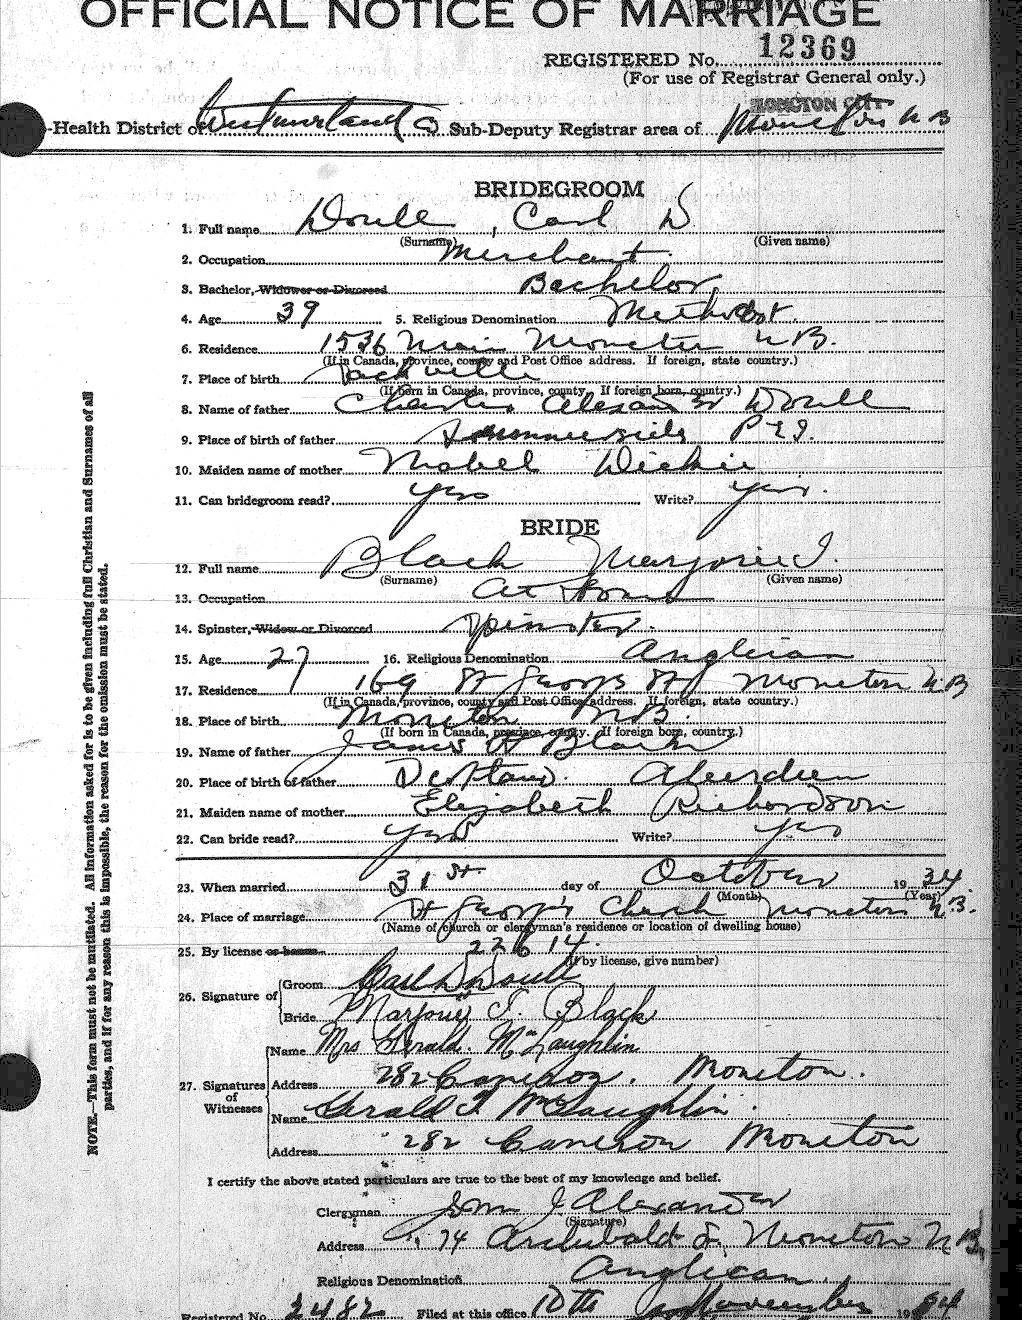 OFFICIAL NOTICE OF MARRIAGE
REGISTERED No. 12369
(For use of Registrar General only.)
MONCTON CITY
-Health District of Westmorland Co Sub-Deputy Registrar area of Moncton N B
BRIDEGROOM
1. Full name Doull, Carl D
(Surname) (Given name)
2. Occupation Merchant
3. Bachelor, Widower or Divorced Bachelor
4. Age 39 5. Religious Denomination Methodist
6. Residence 1536 Main Moncton N B.
(If in Canada, province, county and Post Office address. If foreign, state country.)
7. Place of birth Sackville
(If born in Canada, province, county. If foreign born, country.)
8. Name of father Charles Alexander Doull
9. Place of birth of father Summerside P E I.
10. Maiden name of mother Mabel Dickie
11. Can bridegroom read? yes Write? yes.
BRIDE
12. Full name Black Marjorie I.
(Surname) (Given name)
13. Occupation At Home
14. Spinster, Widow or Divorced Spinster.
15. Age 27 16. Religious Denomination Anglican
17. Residence 169 St George St Moncton N B
(If in Canada, province, county and Post Office address. If foreign, state country.)
18. Place of birth Moncton N B.
(If born in Canada, province, county. If foreign born, country.)
19. Name of father James H Black
20. Place of birth of father Scotland. Aberdeen
21. Maiden name of mother Elizabeth Richardson
22. Can bride read? yes Write? yes
23. When married 31st day of October 1934
(Month) (Year)
24. Place of marriage St George's Church Moncton N.B.
(Name of church or clergyman's residence or location of dwelling house)
25. By license or banns 22614.
(If by license, give number)
26. Signature of Groom Carl D Doull
Bride Marjorie I. Black
27. Signatures of Witnesses
Name Mrs Gerald. McLaughlin
Address 282 Cameron. Moncton.
Name Gerald F McLaughlin.
Address 282 Cameron Moncton
I certify the above stated particulars are true to the best of my knowledge and belief.
Clergyman J Alexander
(Signature)
Address 74 Archibald St Moncton N B
Religious Denomination Anglican
Registered No. 2482 Filed at this office 10th November 1934
NOTE.—This form must not be mutilated. All information asked for is to be given including full Christian and Surnames of all
parties, and if for any reason this is impossible, the reason for the omission must be stated.